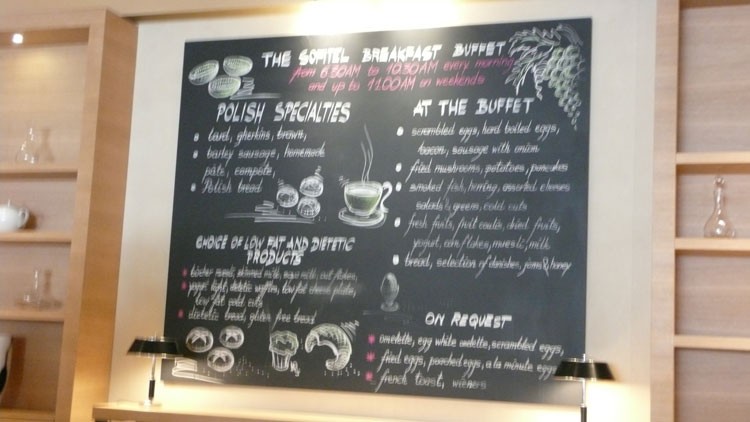 THE SOFITEL BREAKFAST BUFFET
from 6:30AM to 10:30AM every morning
and up to 11:00AM on weekends
POLISH SPECIALTIES
lard, gherkins, brawn,
barley sausage, homemade
pâte, compôte,
Polish bread
CHOICE OF LOW FAT AND DIETETIC
PRODUCTS
skimmed milk, milk,
light, dietetic waffles, low fat plate,
low fat cold cuts
dietetic bread, gluten free bread
AT THE BUFFET
scrambled eggs, hard boiled eggs,
bacon, sausage with onion
fried mushrooms, potatoes, pancakes
smoked fish, herring, assorted cheeses
salads, greens, cold cuts
fresh fruits, fruit dried fruits,
yogurt, corn flakes, muesli, milk
bread, selection of danishes, jams & honey
ON REQUEST
omelette, egg white omelette, scrambled eggs,
fried eggs, poached eggs, a la minute eggs
french toast,